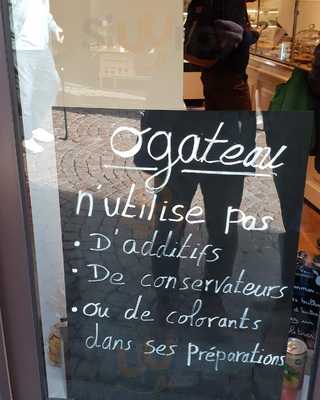 Ôgateau
n'utilise pas
• D'additifs
• De conservateurs
• ou de colorants
dans ses préparations